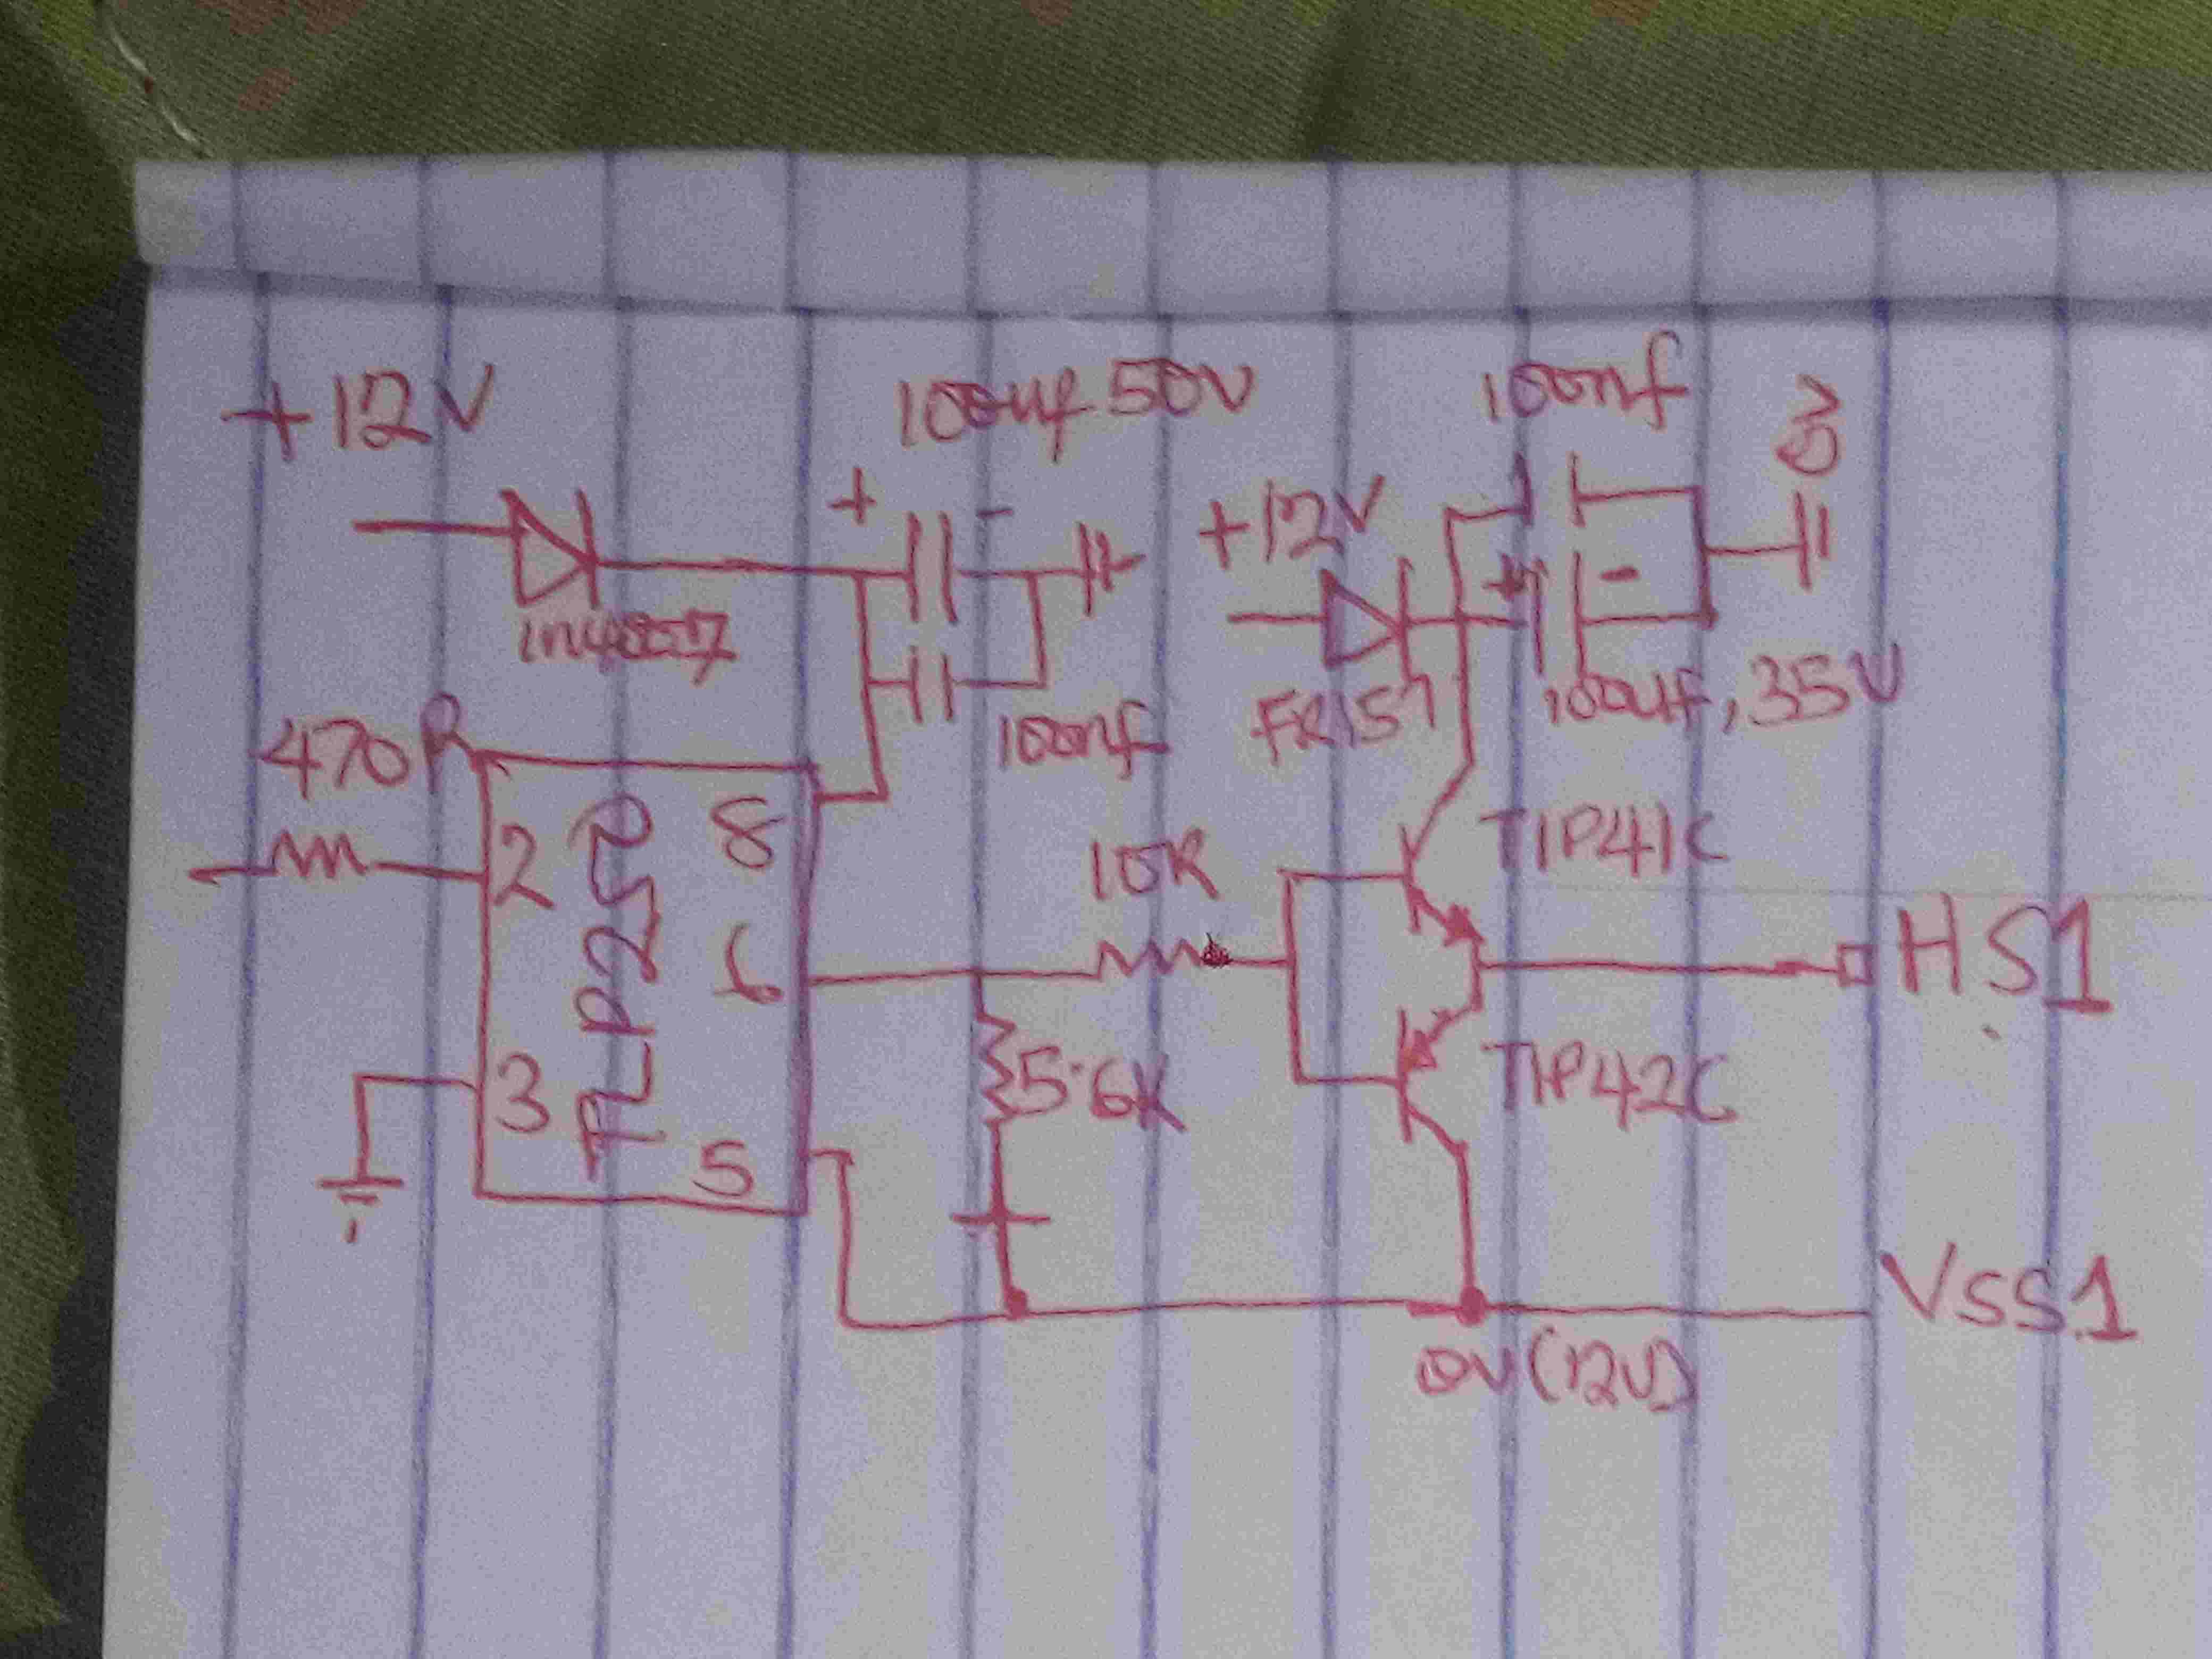 +12V
100uf 50V
100nf
0V
+
-
+12V
+
-
1n4007
FR157
100uf, 35V
470R
100nf
TLP250
8
2
6
3
5
10R
TIP41C
HS1
5.6K
TIP42C
VSS1
0V(12V)